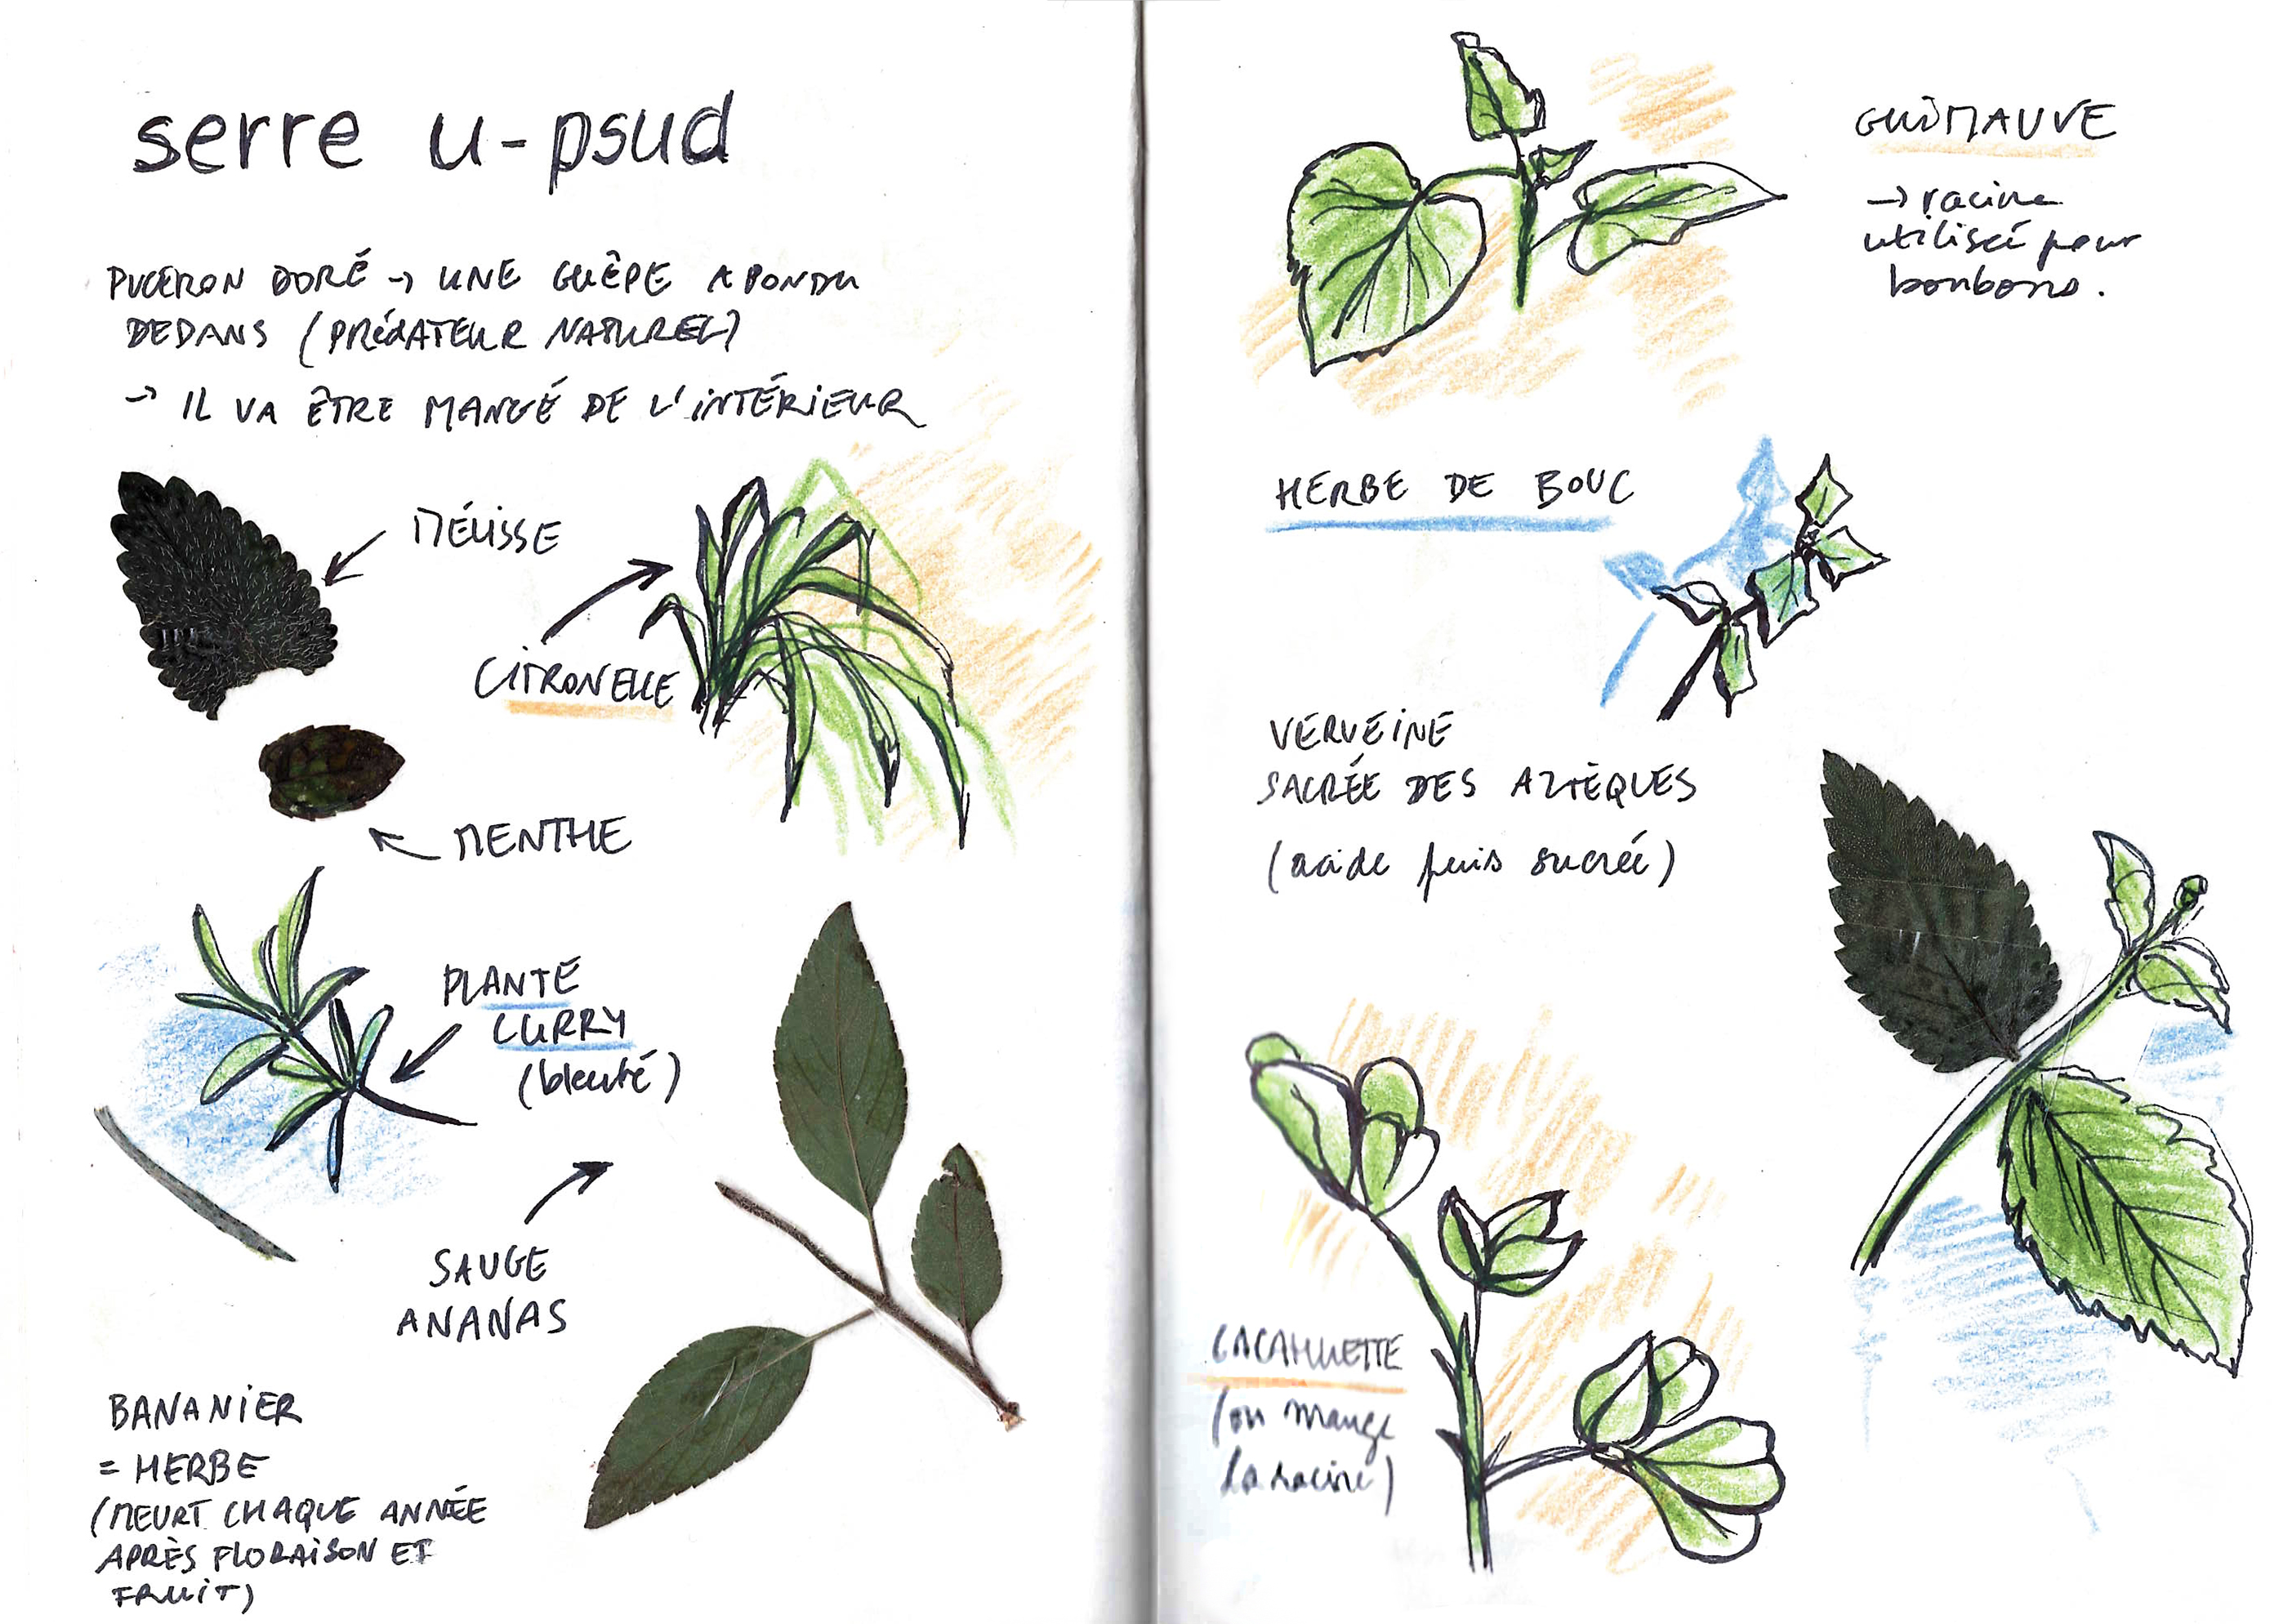 serre u-psud
PUCERON DORÉ → UNE GUÊPE A PONDU
DEDANS (PRÉDATEUR NATUREL)
→ IL VA ÊTRE MANGÉ DE L'INTÉRIEUR
MÉLISSE
CITRONELLE
MENTHE
PLANTE
CURRY
(bleuté)
SAUGE
ANANAS
BANANIER
= HERBE
(MEURT CHAQUE ANNÉE
APRÈS FLORAISON ET
FRUIT)
GUIMAUVE
→ racine
utilisé pour
bonbons.
HERBE DE BOUC
VERVEINE
SACRÉE DES AZTÈQUES
(acide puis sucrée)
CACAHUETTE
(on mange
la racine)